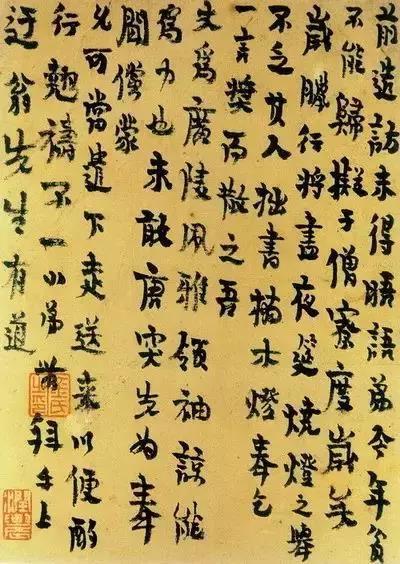 前造訪未得晤語弟今年貧
不能歸擬于僧寮度歲矣
歲臘行將晝夜筵燒燈之舉
不乏其人拙書描燈奉乞
一言獎而散之吾
丈爲廣陵風雅領袖諒能
爲力也未敢唐突先為奉
聞儻蒙
允可當遣下走送來以便酌
行翹禱不一小弟農拜手上
迂翁先生有道